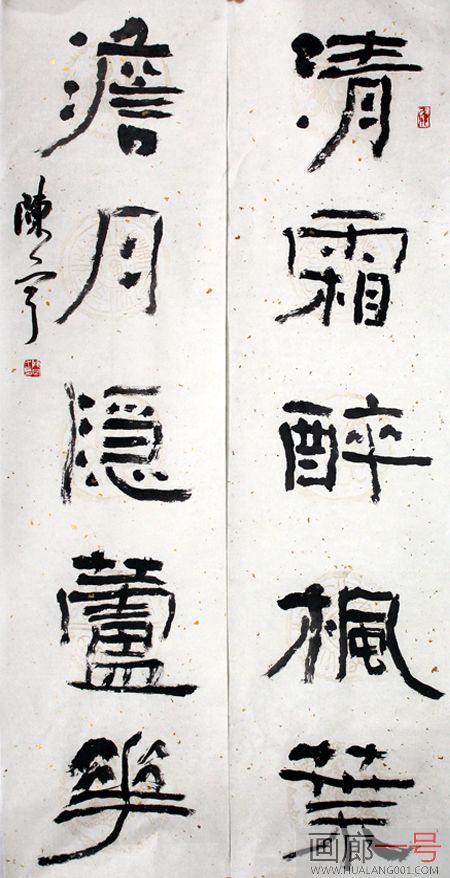 清霜醉楓葉
澹月隐蘆華
陳
画廊一号
WWW.HUALANG001.COM